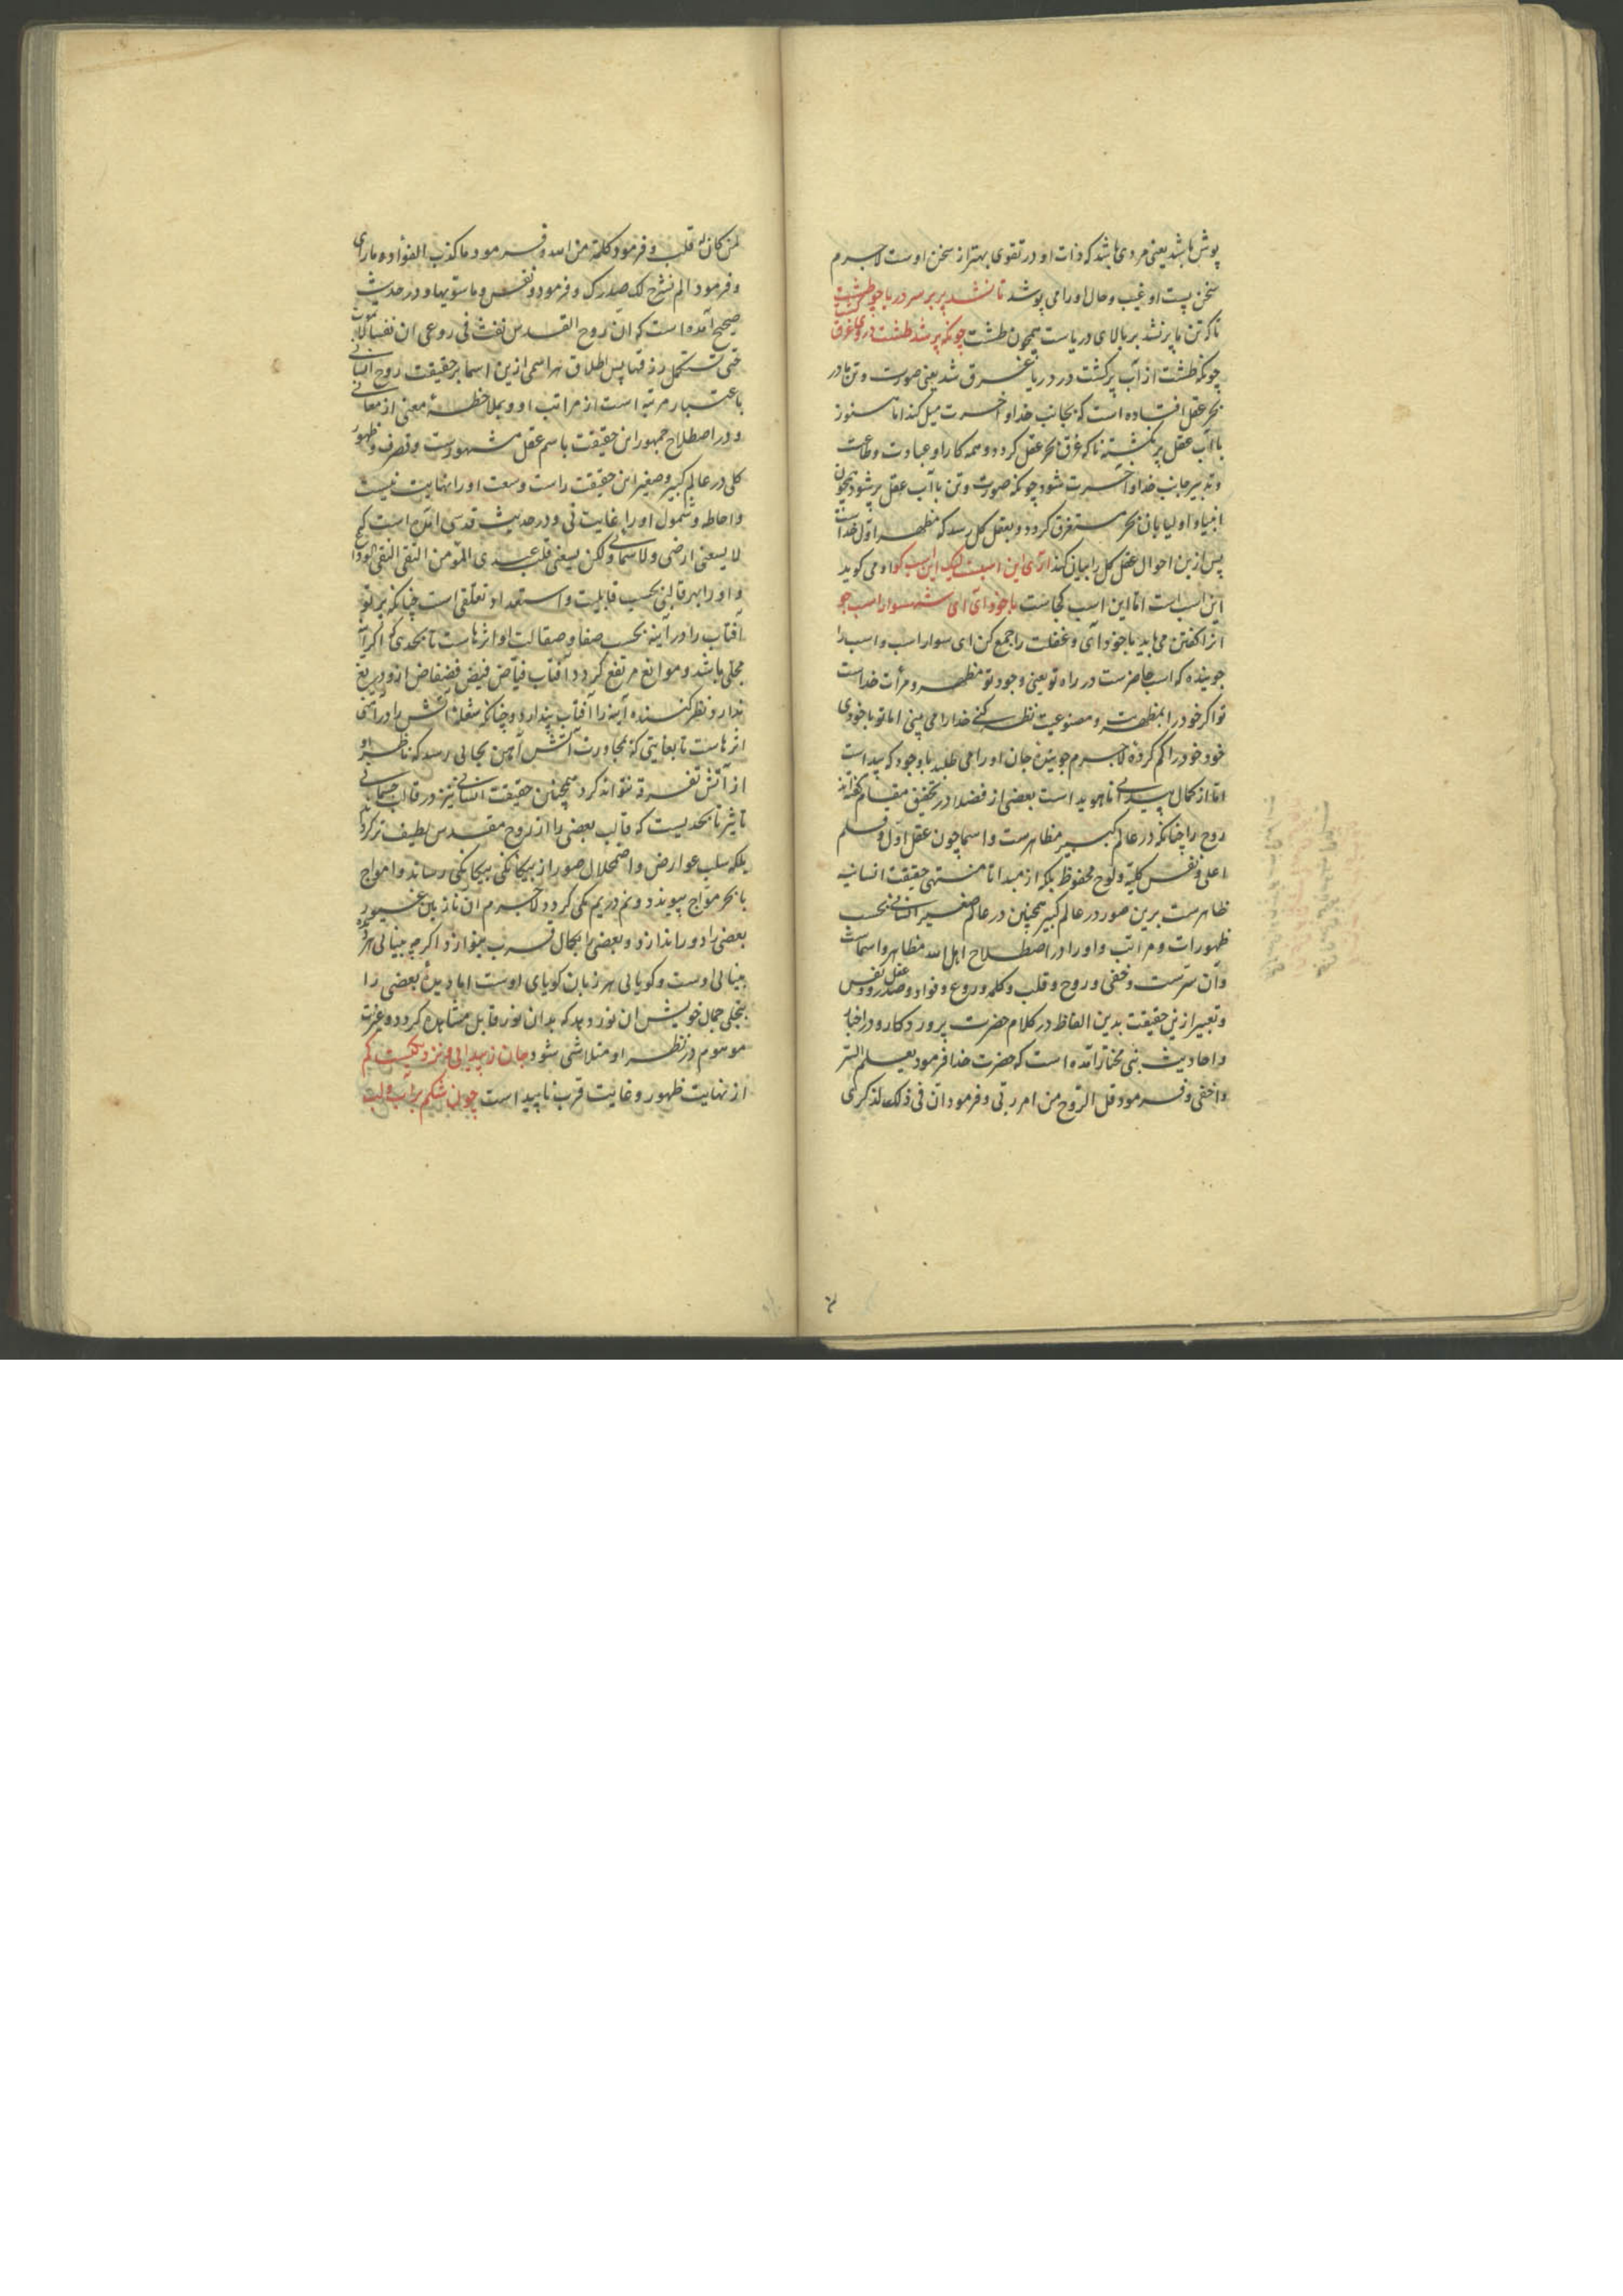 پوش باشد یعنی مردی باشد که ذات او در تقوی بهتر از سخن اوست لاجرم
سخن پست او غیب و حال او را می پوشد تا نشد پر بر سر دریا چو طشت
تا که تن ما پر نشد بر بالای دریاست همچون طشت چونکه پر شد طشت در وی غرق گشت
چونکه طشت از آب پر گشت در دریا غرق شد یعنی صورت و تن ما در
بحر عقل افتاده است که بجانب خدا و آخرت میل کند اما هنوز
با آب عقل پر نگشته تا که غرق بحر عقل گردد و همه کار او عبادت و طاعت
و تدبیر جانب خدا و آخرت شود چونکه صورت و تن با آب عقل پر شود همچون
انبیا و اولیا بان بحر مستغرق گردد و بعقل کل رسد که مظهر اول خداست
پس ازین احوال عقل کل را بیان کند آری این اسبست لیک این اسب کو او می گوید
این اسب است اما این اسب کجاست با خود آی ای شهسوار اسب جو
انرا گفتن می باید با خود آی و غفلت را جمع کن ای سوار اسب و اسب را
جوینده کو اسب حاضرست در راه تو یعنی وجود تو مظهر و مرآت خداست
تو اگر خود را بمظهریت و مصنوعیت نظر کنی خدا را می بینی اما تو با خودی
خود خود را گم کرده لاجرم جوینده جان او را می طلبد با وجود که پیداست
اما از کمال پیدایی ناهویداست بعضی از فضلا در تحقیق مقام گفته اند
روح را چنانکه در عالم کبیر مظاهرست و اسما چون عقل اول و قلم
اعلی و نفس کلیه و لوح محفوظ بلکه از مبدا تا منتهی حقیقت انسانیه
ظاهرست برین صور در عالم کبیر همچنین در عالم صغیر انسانی بحسب
ظهورات و مراتب و او را در اصطلاح اهل الله مظاهر و اسماست
و آن سرست و خفی و روح و قلب و کلمه و روع و فواد و صدر و عقل و نفس
و تعبیر ازین حقیقت بدین الفاظ در کلام حضرت پروردکار و در اخبار
و احادیث نبی مختار آمده است که حضرت خدا فرمود یعلم السر
و اخفی و فرمود قل الروح من امر ربی و فرمود ان فی ذلک لذکری
لمن کان له قلب و فرمود کلمة من الله و فرمود ما کذب الفؤاد ما رای
و فرمود الم نشرح لک صدرک و فرمود و نفس و ما سویها و در حدیث
صحیح آمده است که ان روح القدس نفث فی روعی ان نفسا لا تموت
حتی تستکمل رزقها پس اطلاق هر اسمی ازین اسما بر حقیقت روح انسانی
باعتبار مرتبه است از مراتب او و بملاحظه معنی از معانی
و در اصطلاح جمهور این حقیقت باسم عقل مشهورست و تصرف و ظهور
کلی در عالم کبیر و صغیر این حقیقت راست و سعت او را نهایت نیست
و احاطه و شمول او را غایت نی و در حدیث قدسی آمده است که
لا یسعنی ارضی و لا سمائی و لکن یسعنی قلب عبدی المؤمن التقی النقی الورع
و او را بهر قالبی بحسب قابلیت و استعداد تعلقی است چنانکه پرتو
آفتاب را در آینه بحسب صفا و صقالت او اثرهاست تا بحدی که اگر آینه
مجلی باشد و موانع مرتفع گردد آفتاب فیاض فیض فضفاض ازو دریغ
ندارد و نظر کننده آینه را آفتاب پندارد و چنانکه شعله آتش را در آهن
اثرهاست تا بغایتی که بمجاورت آتش آهن بجایی رسد که ناظر او
از آتش تفرقه نتواند کرد همچنین حقیقت انسانی نیز در قالب جسمانی
تاثیر تا بحدیست که قالب بعضی را از روح مقدس لطیف تر گرداند
بلکه سلب عوارض و اضمحلال صور از بیگانگی بیگانگی رساند و امواج
با بحر مواج پیوندد و نم در یم یکی گردد لاجرم ان نازنین غیور
بعضی را دور اندازد و بعضی را بکمال قرب بنوازد اگرچه بینایی هر دیده
بینایی اوست و گویایی هر زبان گویای اوست اما دیده بعضی را
بتجلی جمال خویش ان نور دهد که بدان نور قابل مشاهده گردد و غیریت
موهوم در نظر او متلاشی شود جان ز پیدایی و نزدیکیست گم
از نهایت ظهور و غایت قرب ناپیداست چون شکم پر آب و لب